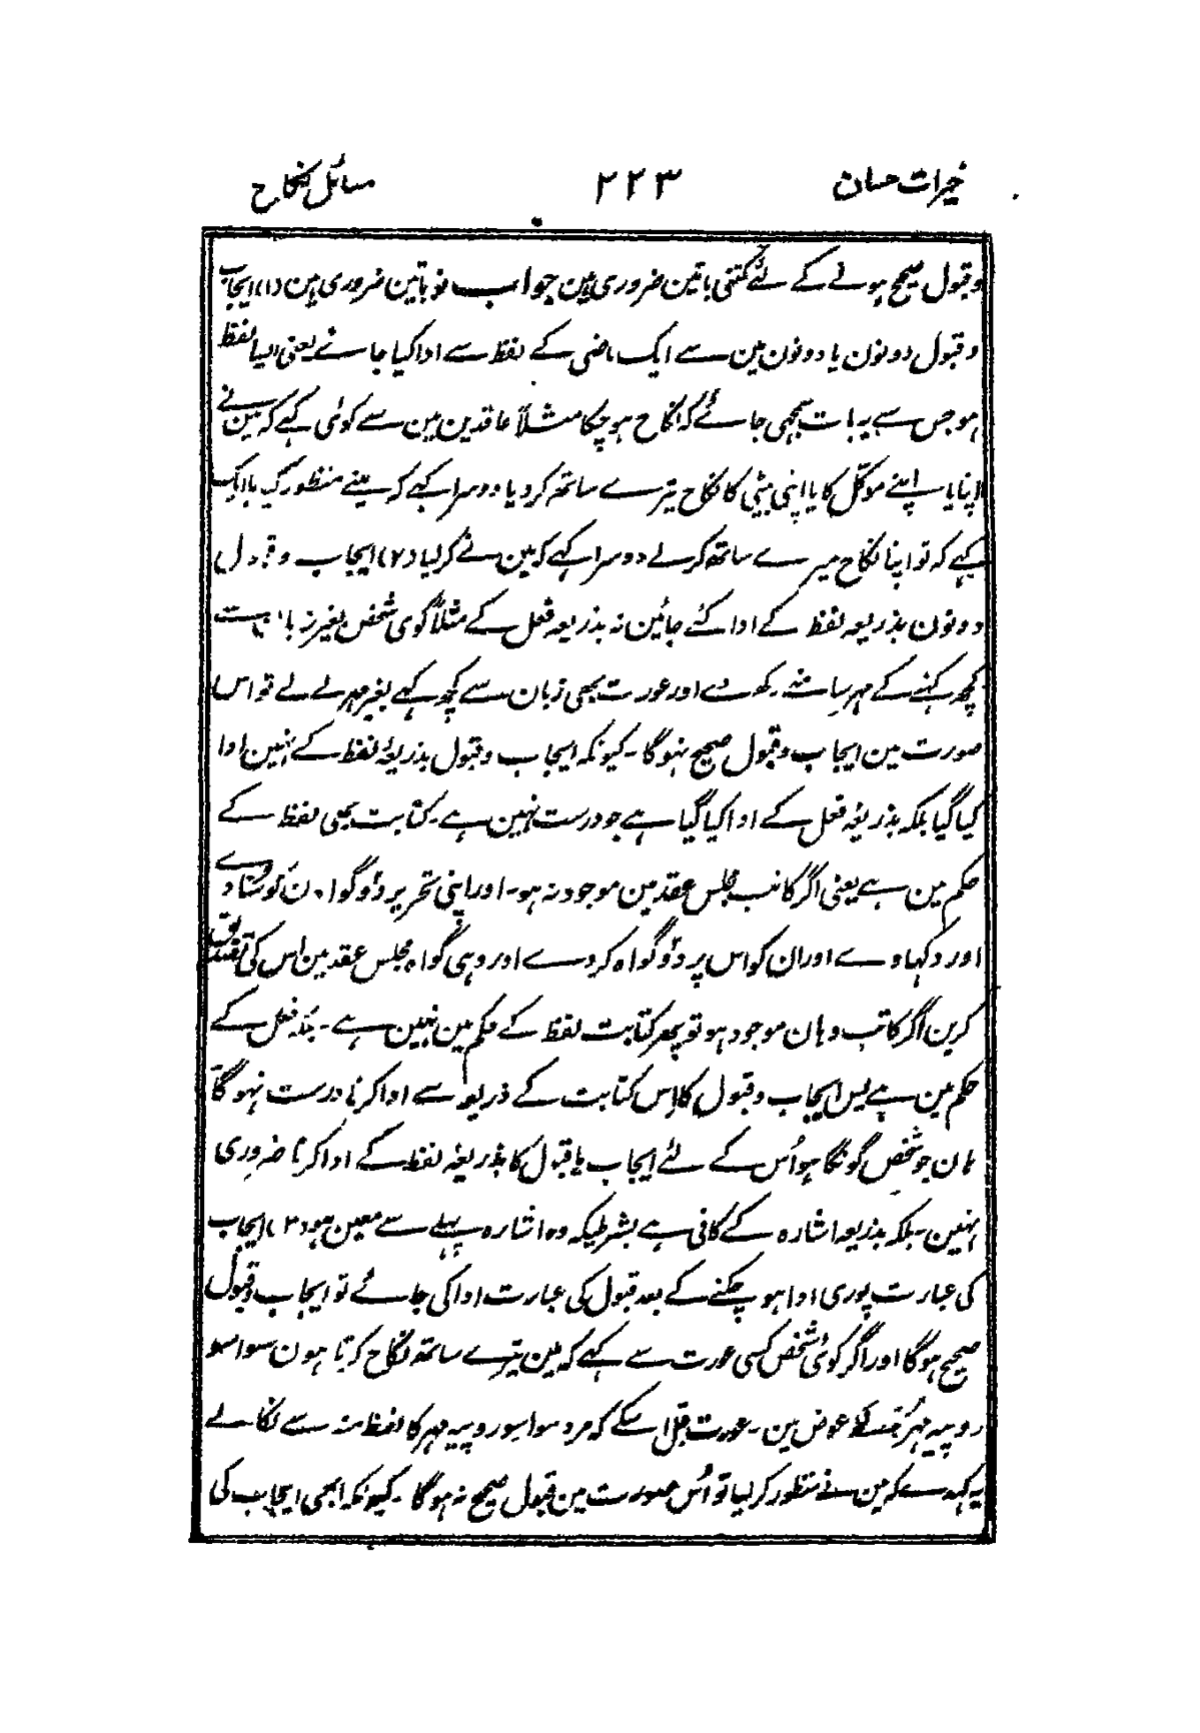 خیرات حسان ۲۲۳ مسائل نکاح
وقبول صحیح ہونے کے لئے کتنی باتین ضروری ہین جواب نو باتین ضروری ہین (۱) ایجاب
وقبول دونون یا دونون مین سے ایک ماضی کے لفظ سے ادا کیا جاے یعنی ایسا لفظ
ہو جس سے یہ بات سمجھی جائے کہ نکاح ہو چکا مثلاً عاقدین مین سے کوئی کہے کہ مین نے
اپنا یا اپنے موکل کا یا اپنی بیٹی کا نکاح تیرے ساتھ کر دیا دوسرا کہے کہ مینے منظور کیا یا ایک
کہے کہ تو اپنا نکاح میرے ساتھ کر لے دوسرا کہے کہ مین نے کر لیا (۲) ایجاب و قبول
دونون بذریعہ لفظ کے ادا کئے جائین نہ بذریعہ فعل کے مثلاً کوی شخص بغیر زبان سے
کچھ کہنے کے مہر سامنے رکھ دے اور عورت بھی زبان سے کچھ کہے بغیر مہر لے لے تو اس
صورت مین ایجاب وقبول صحیح نہوگا ۔ کیونکہ ایجاب وقبول بذریعۂ لفظ کے نہین ادا
کیا گیا بلکہ بذریعۂ فعل کے ادا کیا گیا ہے جو درست نہین ہے ۔ کتابت بھی لفظ کے
حکم مین ہے یعنی اگر کاتب مجلس عقد مین موجود نہ ہو ۔ اور اپنی تحریر دو گواہون کو سنا دے
اور دکہا دے اور ان کو اس پر دو گواہ کر دے اور وہی گواہ مجلس عقد مین اس کی تصدیق
کرین اگر کاتب وہان موجود ہو تو پھر کتابت لفظ کے حکم مین نہین ہے ۔ بلکہ فعل کے
حکم مین ہے پس ایجاب وقبول کا اس کتابت کے ذریعہ سے ادا کرنا درست نہوگا
ہان جو شخص گونگا ہو اُس کے لئے ایجاب یا قبول کا بذریعۂ لفظ کے ادا کرنا ضروری
نہین ۔ بلکہ بذریعہ اشارہ کے کافی ہے بشرطیکہ وہ اشارہ پہلے سے معین ہو (۳) ایجاب
کی عبارت پوری ادا ہو چکنے کے بعد قبول کی عبارت ادا کی جائے تو ایجاب وقبول
صحیح ہوگا اور اگر کوئی شخص کسی عورت سے کہے کہ مین تیرے ساتھ نکاح کرتا ہون سوا سو
روپیہ مہر کے عوض مین ۔ عورت قبل اسکے کہ مرد سوا سو روپیہ مہر کا لفظ منہ سے نکالے
یہ کہدے کہ مین نے منظور کر لیا تو اُس صورت مین قبول صحیح نہ ہوگا ۔ کیونکہ ابھی ایجاب کی